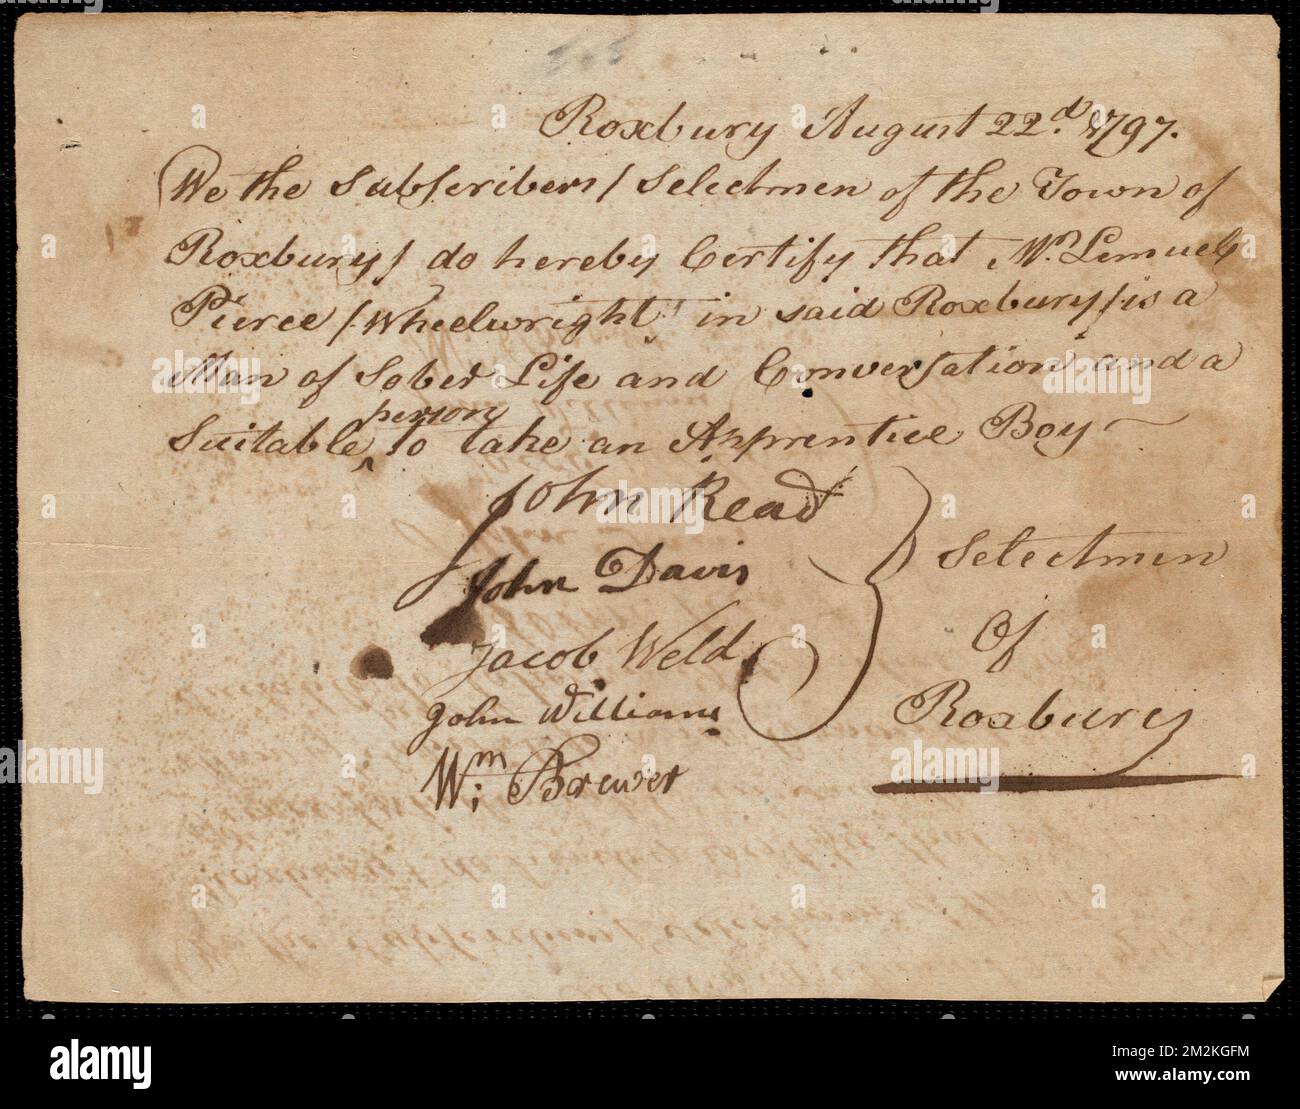 Roxbury August 22.d 1797.
We the Subscribers / Selectmen of the Town of
Roxbury / do hereby Certify that Mr. Lemuel
Pierce / Wheelwright in said Roxbury / is a
Man of Sober Life and Conversation and a
Suitable ^ person to take an Apprentice Boy —
John Read
John Davis
Jacob Weld
John Williams
Wm. Brewer
Selectmen
Of
Roxbury
alamy
Image ID: 2M2KGFM
www.alamy.com